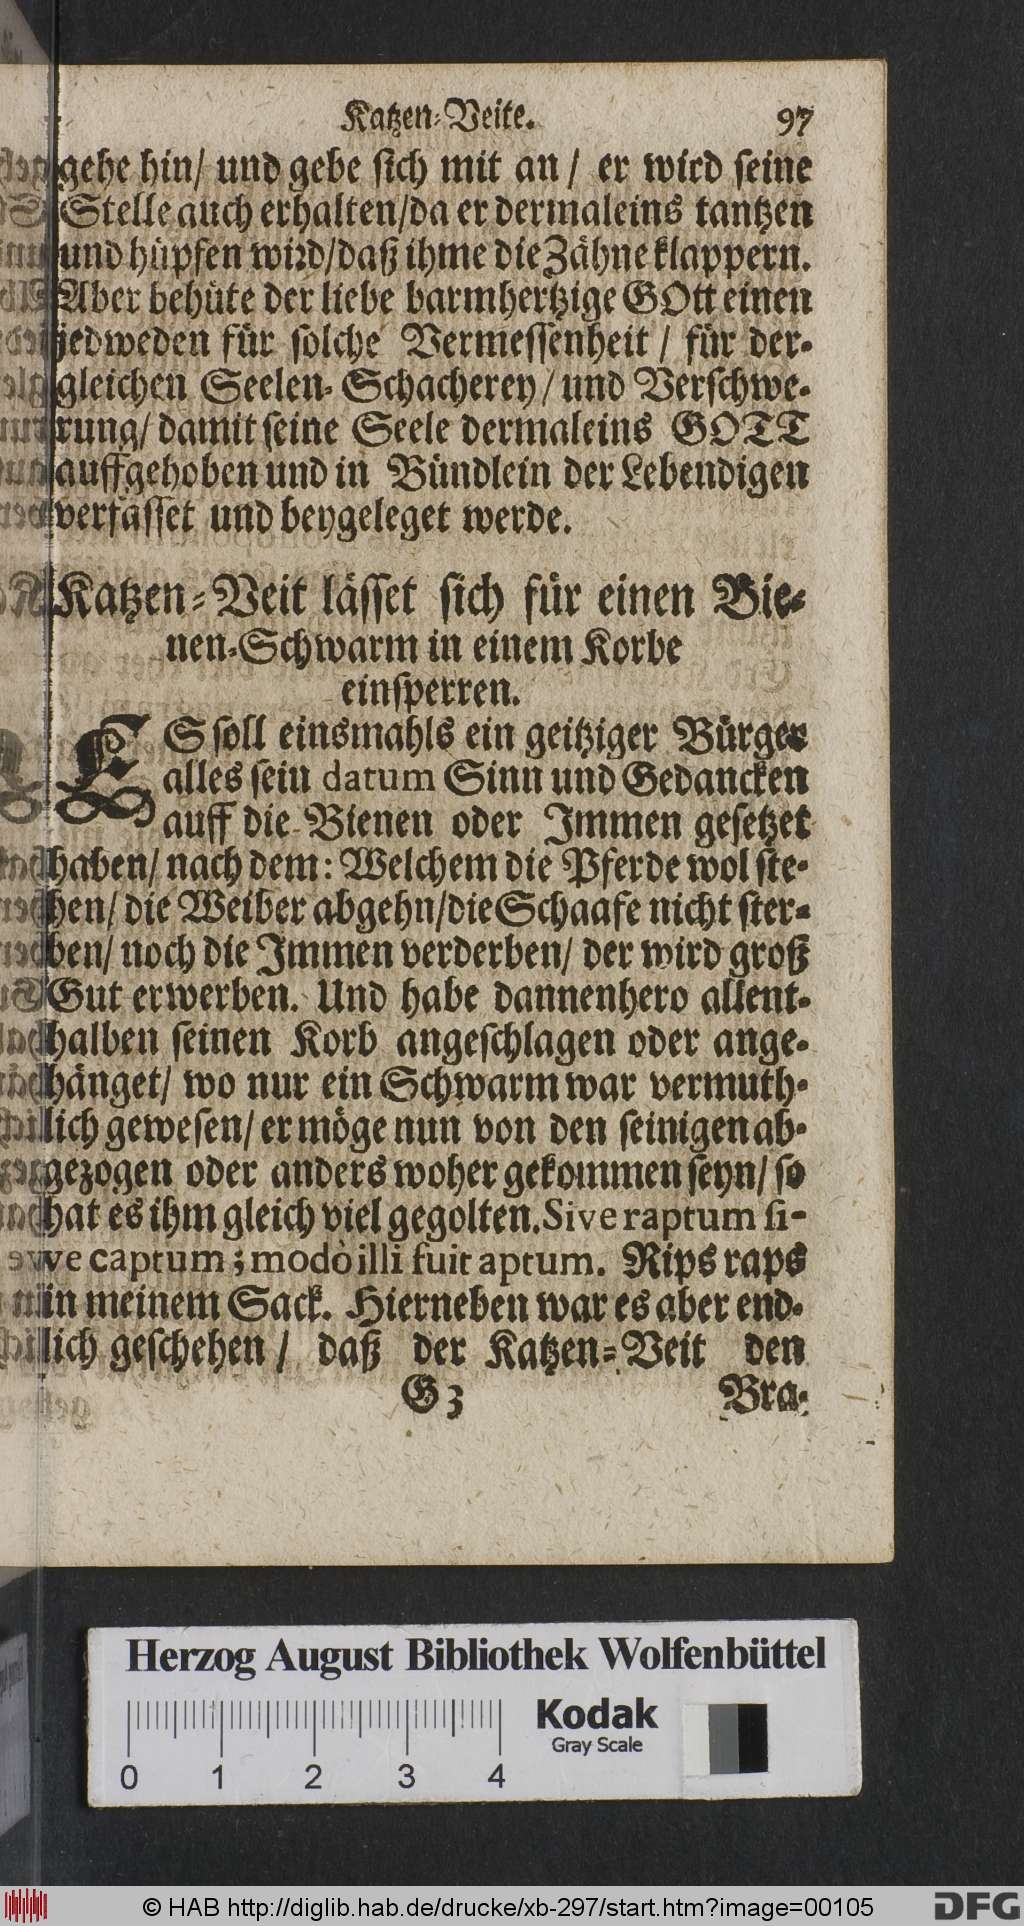 Katzen-Veite. 97
gehe hin/ und gebe sich mit an/ er wird seine
Stelle auch erhalten/da er dermaleins tantzen
und hüpfen wird/daß ihme die Zähne klappern.
Aber behüte der liebe barmhertzige GOtt einen
jedweden für solche Vermessenheit/ für der-
gleichen Seelen-Schacherey/ und Verschwe-
rung/ damit seine Seele dermaleins GOTT
auffgehoben und in Bündlein der Lebendigen
verfasset und beygeleget werde.
Katzen-Veit lässet sich für einen Bie-
nen-Schwarm in einem Korbe
einsperren.
ES soll einsmahls ein geitziger Bürger
alles sein datum Sinn und Gedancken
auff die Bienen oder Immen gesetzet
haben/ nach dem: Welchem die Pferde wol ste-
hen/ die Weiber abgehn/die Schaafe nicht ster-
ben/ noch die Immen verderben/ der wird groß
Gut erwerben. Und habe dannenhero allent-
halben seinen Korb angeschlagen oder ange-
hänget/ wo nur ein Schwarm war vermuth-
lich gewesen/ er möge nun von den seinigen ab-
gezogen oder anders woher gekommen seyn/ so
hat es ihm gleich viel gegolten. Sive raptum si-
ve captum; modò illi fuit aptum. Rips raps
in meinem Sack. Hierneben war es aber end-
lich geschehen/ daß der Katzen-Veit den
G3 Bra-
Herzog August Bibliothek Wolfenbüttel
Kodak
Gray Scale
0 1 2 3 4
© HAB http://diglib.hab.de/drucke/xb-297/start.htm?image=00105
DFG